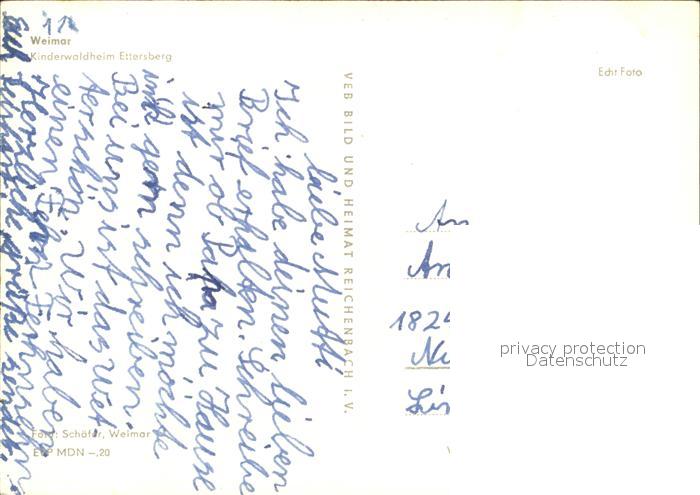 11
Weimar
Kinderwaldheim Ettersberg
Echt Foto
liebe Mutti
Ich habe deinen lieben
Brief erhalten. Schreibe
mir ob Papa zu Hause
ist denn ich möchte
ihm gern schreiben.
Bei uns ist das Wet
ter schön. Wir haben
einen
Herzliche
Grüße sendet
VEB BILD UND HEIMAT REICHENBACH i. V.
An
1824
privacy protection
Datenschutz
Foto: Schäfer, Weimar
EVP MDN –,20